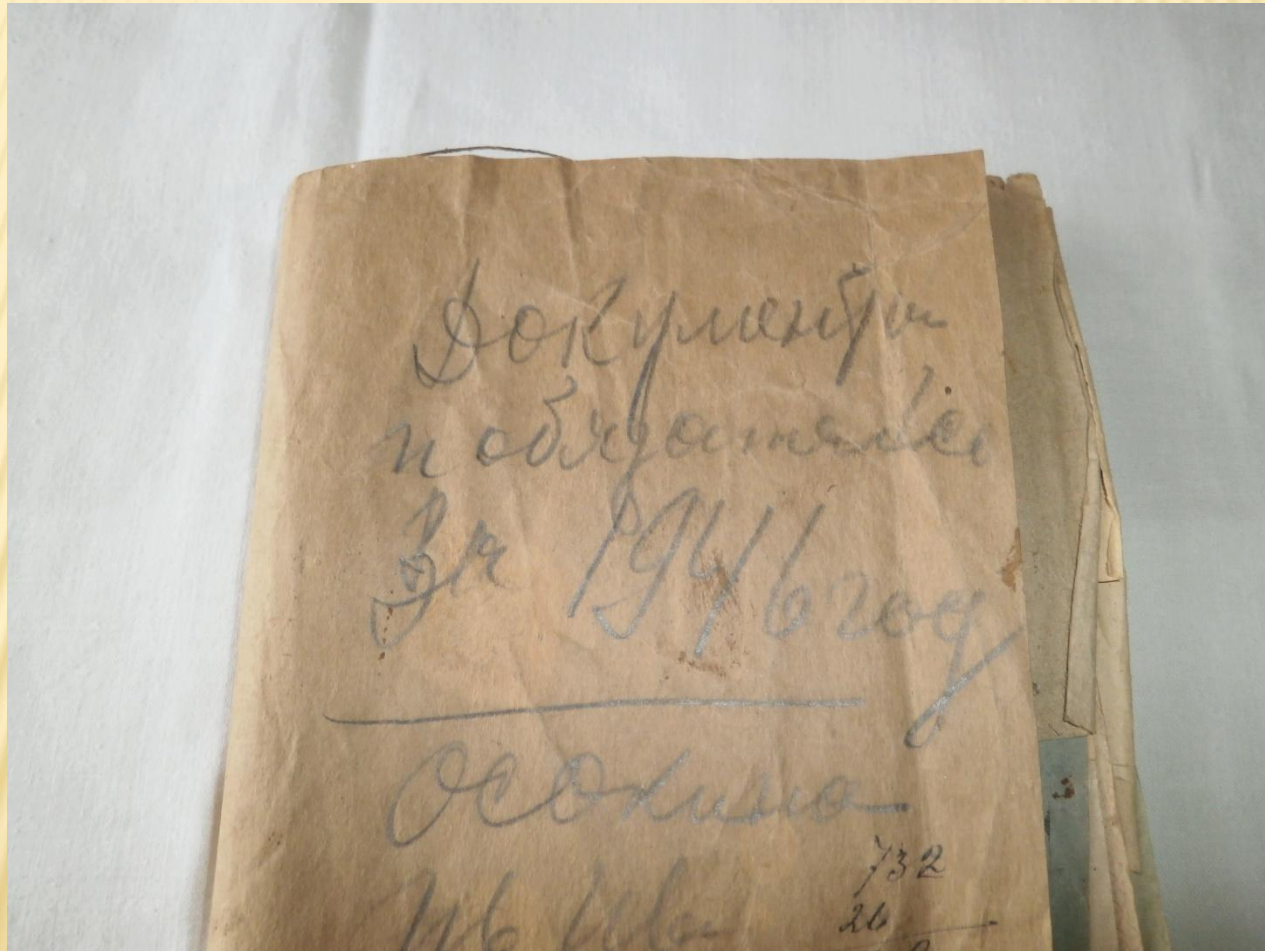 Документы
и обязательс
За 1946 год
Осокина
732
26